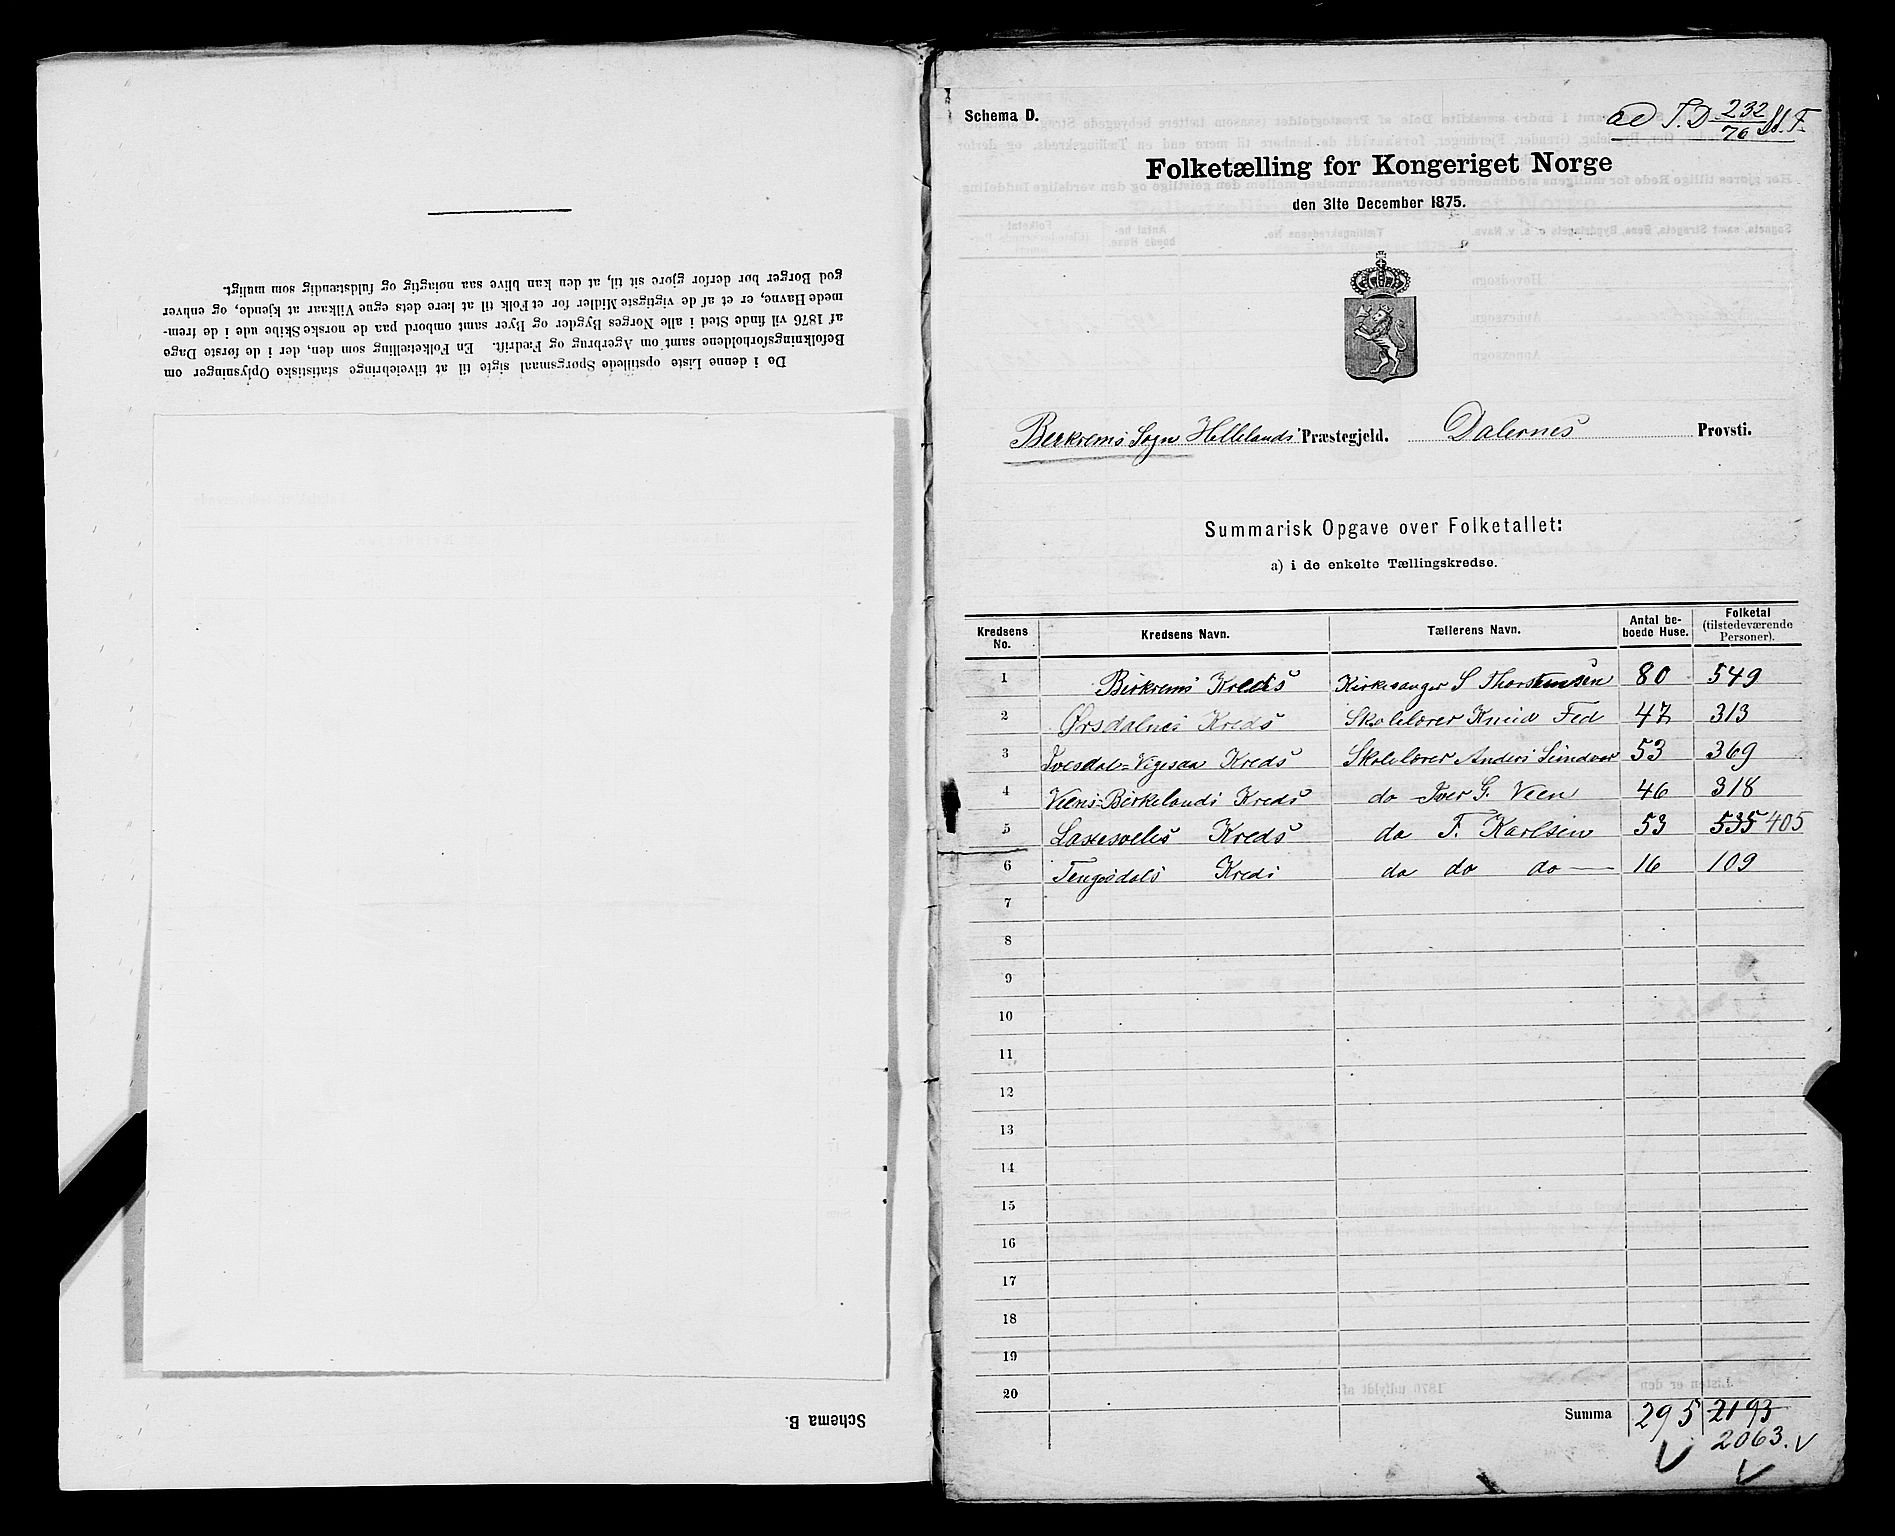 De i denne Liste opstillede Spørgsmaal sigte til at tilveiebringe statistiske Oplysninger om
Befolkningsforholdene samt om Agerbrug og Fædrift. En Folketælling som den, der i de første Dage
af 1876 vil finde Sted i alle Norges Bygder og Byer samt ombord paa de norske Skibe ude i de frem-
mede Havne, er et af de vigtigste Midler for et Folk til at lære dets egne Vilkaar at kjende, og enhver
god Borger bør derfor gjøre sit til, at den kan blive saa nøiagtig og fuldstændig som muligt.
Schema B.
Schema D.
ad T. D 232/76
Folketælling for Kongeriget Norge
den 31te December 1875.
Berkrems Sogn Hellelands Præstegjeld. Dalernes Provsti.
Summarisk Opgave over Folketallet:
a) i de enkelte Tællingskredse.
Kredsens No. Kredsens Navn. Tællerens Navn. Antal be- boede Huse. Folketal (tilstedeværende Personer).
1 Birkrems Kreds Kirkesanger S Thorstensen 80 549
2 Ørsdalnes Kreds Skolelærer Knud Fed 47 313
3 Ivesdal-Vigesaa Kreds Skolelærer Anders 53 369
4 Veens-Birkelands Kreds do Iver G. Veen 46 318
5 Laxesveles Kreds do T. Karlsen 53 535 405
6 Tengesdals Kreds do do do 16 109
7
8
9
10
11
12
13
14
15
16
17
18
19
20
Summa 295 2193
2063.